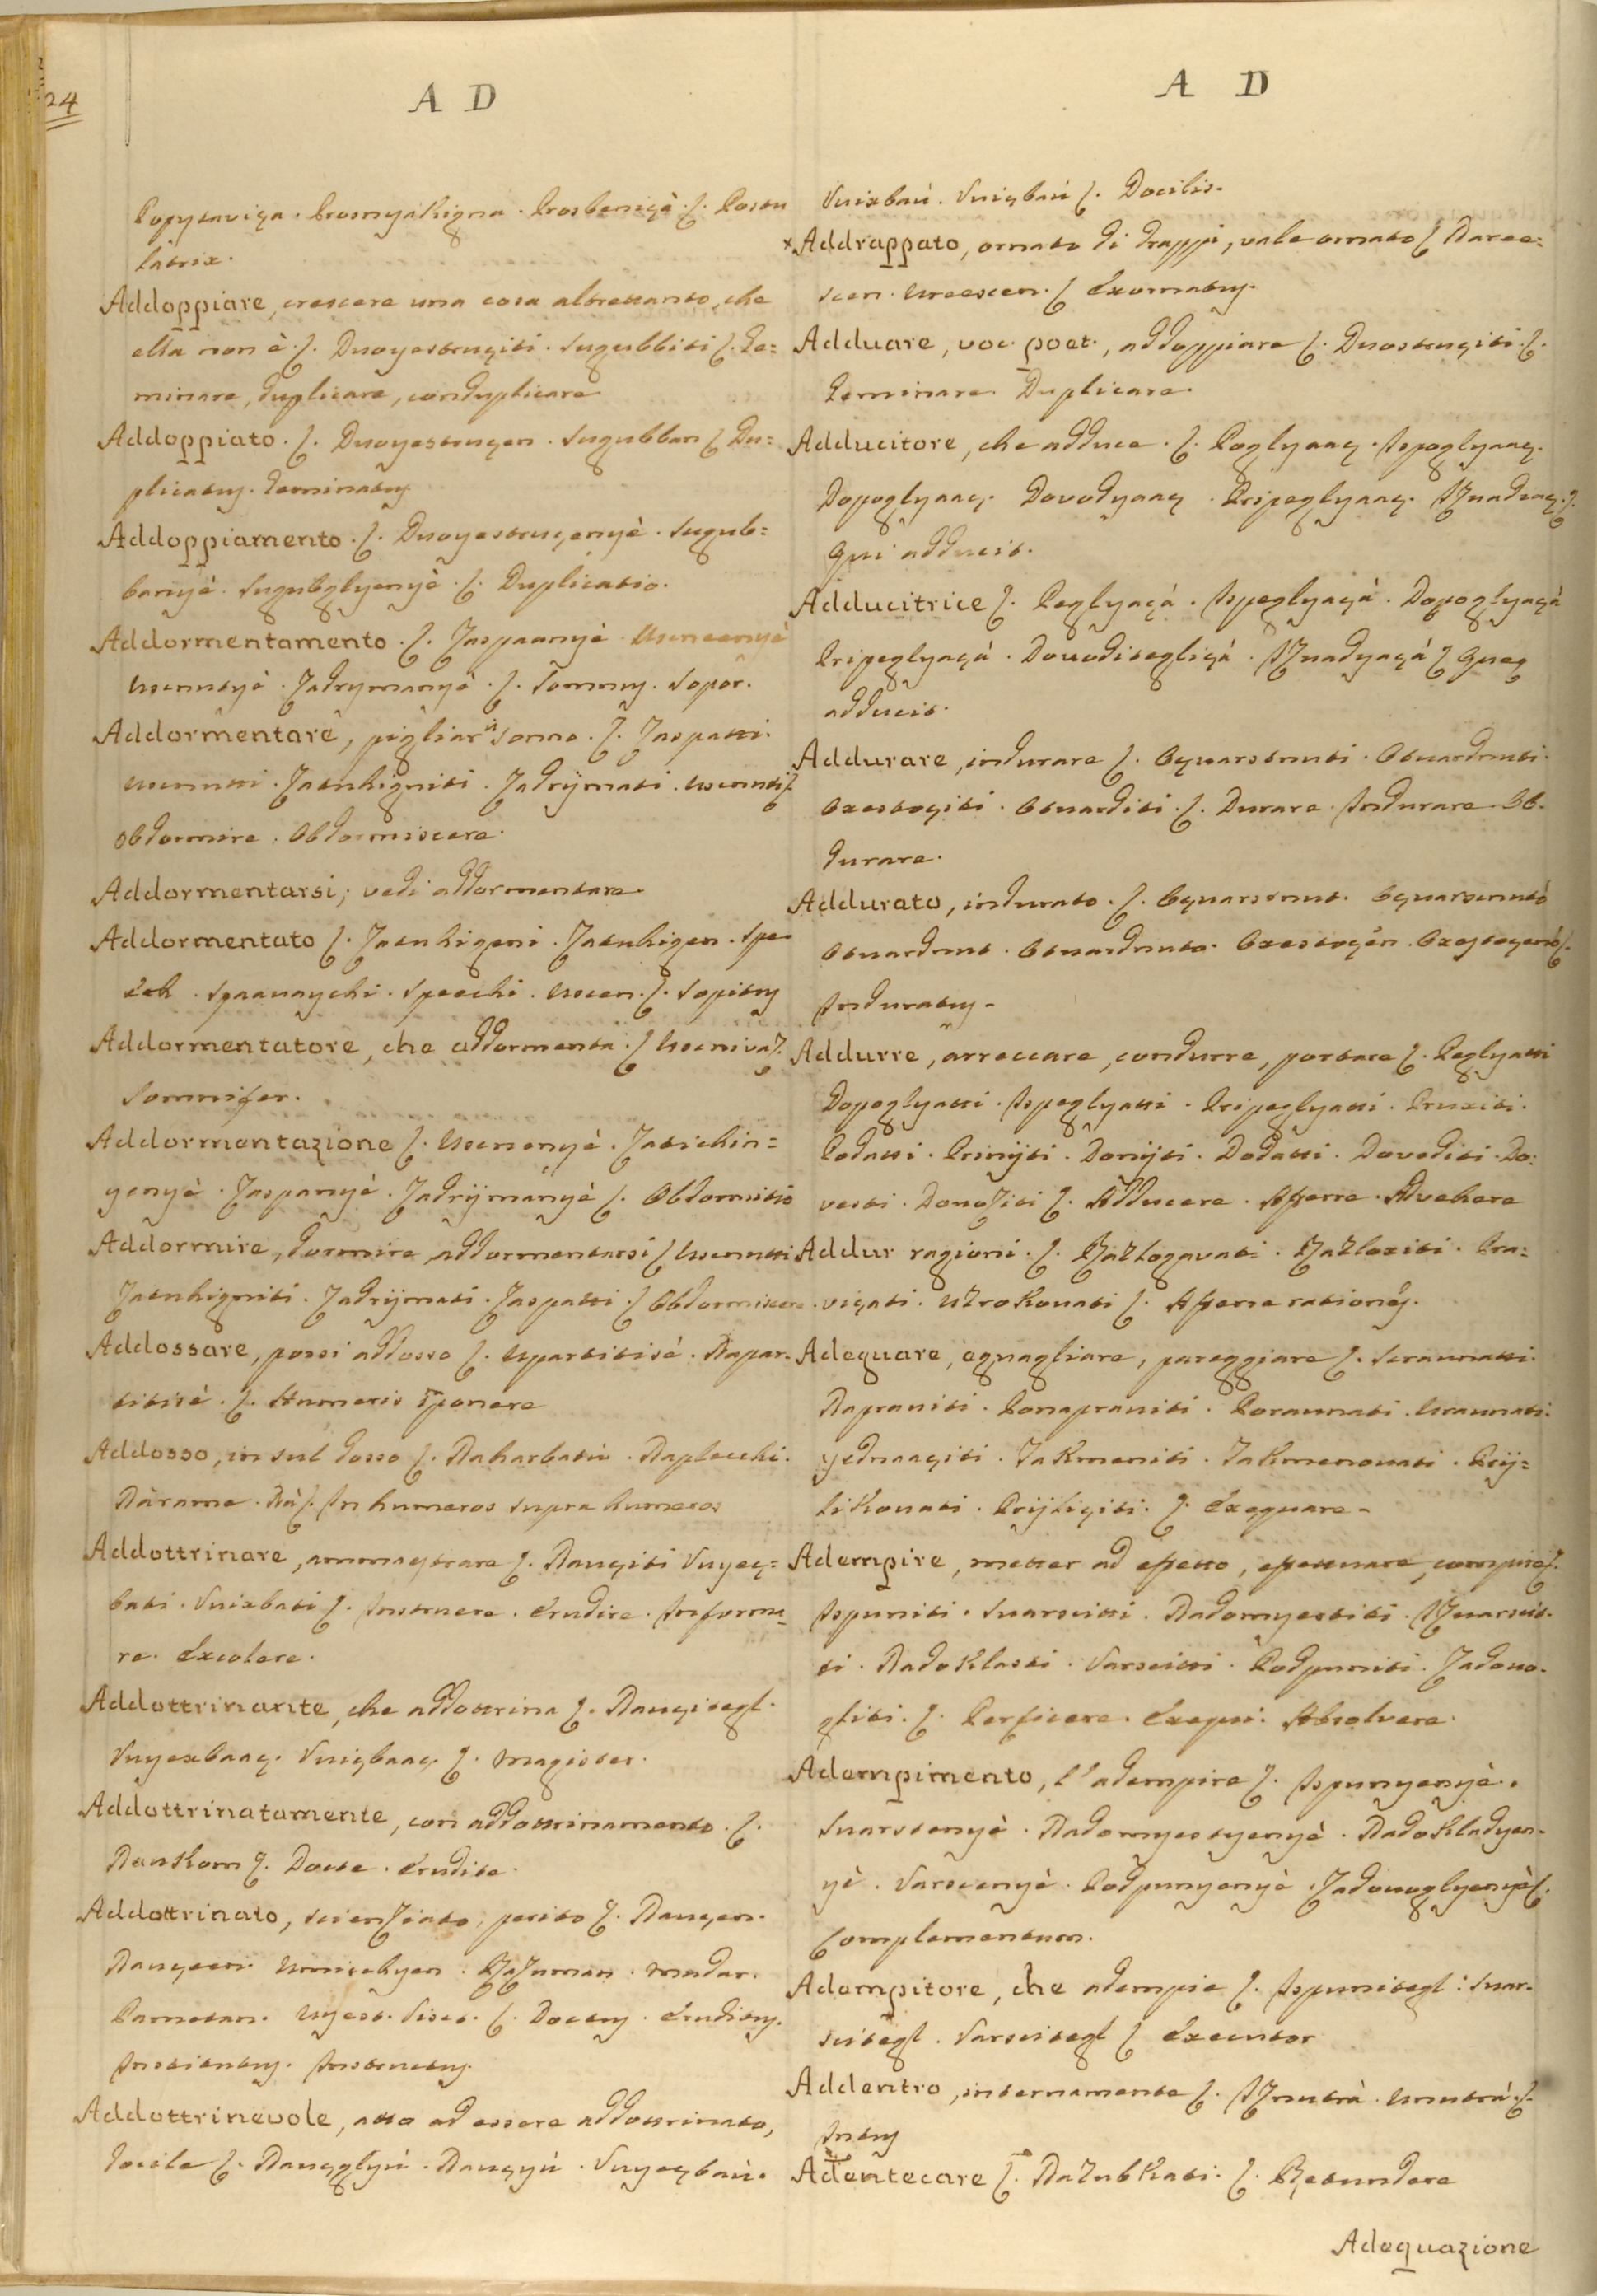 24
A D
Popytaviça . Prosnyakigna . Prosbeniçà . ſ. Postu
latrix.
Addoppiare, crescere una cosa altrettanto, che
ella non è . ſ. Dvoyestruçiti . Sugubbiti ſ. Ge=
minare, duplicare, conduplicare
Addoppiato . ſ. Dvoyestruçen . Sugubban ſ Du=
plicatus. Geminatus
Addoppiamento . ſ. Dvoyestruçenyè . Sugub=
banyè . Sugubglyenyè . ſ. Duplicatio.
Addormentamento . ſ. Zaspaanyè . Usneenyè
Usnutyè . Zadrymanyè . ſ. Somnus. Sopor.
Addormentare, pigliar il sonno . ſ. Zaspatti.
Usnutti . Zatuhigniti . Zadrijmati . Usnuti ſ
Obdormire . Obdormiscere.
Addormentarsi, vedi addormentare.
Addormentato ſ. Zatuhigeni . Zatuhigen . Spe-
ech . Spaavaychi . Speechi . Usen . ſ. Sopitus
Addormentatore, che addormenta . ſ Usenivaz.
Somnifer.
Addormentazione ſ. Usenenyè . Zatichin=
yenyè . Zaspanyè . Zadrijmanyè ſ. Obdormitio
Addormire, dormire, addormentarsi ſ Usnutti
Zatuhigniti . Zadrijmati . Zaspatti . ſ Obdormiscere
Addossare, porsi addosso ſ. Upartitisè . Napar-
titisè . ſ. Humeris iponere
Addosso, in sul dosso ſ. Naharbatiu . Naplecchi.
Nàrame . Nà ſ. In humeros supra humeros
Addottrinare, ammaystrare ſ. Nauçiti Vuyeç=
bati . Vuixbati ſ. Instruere . Erudire . Informa=
re. Excolere.
Addottrinante, che addottrina ſ. Nauçitegl.
Vuyexbaaç. Vuiçbaaç ſ. Magister.
Addottrinatamente, con addottrinamento . ſ.
Naukom ſ. Docte . Erudite.
Addottrinato, scienziato, perito ſ. Nauçen.
Nauçeen . Umichyen . Razuman . Mudar.
Pametan. Uyest. Vist. ſ. Doctus . Eruditus.
Institutus. Instructus.
Addottrinevole, atto ad essere addottrinato,
docile ſ. Nauçglyiu . Nauçyiu . Vuyeçbaiu.
A D
Vuixbaiu . Vuiçbaiu ſ. Docilis.
x Addrappato, ornato di drappi, vale ornato ſ Naree=
scen . Ureescen . ſ Exornatus.
Adduare, voc. poet., addoppiare ſ. Dvostruçiti . ſ.
Geminare. Duplicare.
Adducitore, che adduce . ſ. Poglyaaç . Ispoglyaaç.
Dopoglyaaç. Dovodyaaç . Pripeglyaaç. Iznadraç. ſ.
Qui adducit.
Adducitrice ſ. Peglyaçà . Ispeglyaçà . Dopoglyaçà
Pripeglyaçà . Dovoditegliçà . Iznadyaçà ſ Quæ
adducit.
Addurare, indurare ſ. Oçuarstnuti . Otuardnuti.
Oxestoçiti . Otuarditi . ſ. Durare . Indurare . Ob-
durare.
Addurato, indurato . ſ. Oçuarstnut. Oçuarstnutò
Otuardnut . Otuardnuto . Oxestoçen . Oxestoçenò ſ.
Induratus.
Addurre, arreccare, condurre, portare ſ. Peglyatti
Dopoglyatti . Ispeglyatti . Pripeglyatti . Pruxiti.
Podatti . Prinijti . Donijti . Dodatti . Dovoditi . Do=
vesti . Dovoziti ſ. Adducere . Afferre . Advehere
Addur ragioni . ſ. Razlogavati . Razloxiti . Pra=
viçati . Uzrokovati ſ. Afferre rationes.
Adeguare, eguagliare, pareggiare ſ. Sraunatti.
Napraviti . Ponapraviti . Poraunati . Uraunati.
yednaaçiti . Takmeniti . Takmenovati . Prij=
likovati . Prijliçiti . ſ. Exæquare.
Adempire, metter ad effetto, effettuare, compire ſ.
Ispuniti . Suarscitti . Nadomyestiti . Izuarscit-
ti . Nadoklasti . Varscitti . Podpuniti . Zadovo-
gliti . ſ. Perficere. Exequi. Absolvere.
Adempimento, l' adempire ſ. Ispunyenyè.
Suarscenyè . Nadomyestyenyè . Nadokladyen-
yè . Varscenyè . Podpunyenyè . Zadovoglyenyè ſ.
Complementum.
Adempitore, che adempie ſ. Ispunitegl . Suar-
scitegl . Varscitegl ſ Executor
Addentro, internamente ſ. Iznutrà . Unutrà . ſ.
Intus
Adentecare ſ. Nazubkati . ſ. Retundere
Adequazione